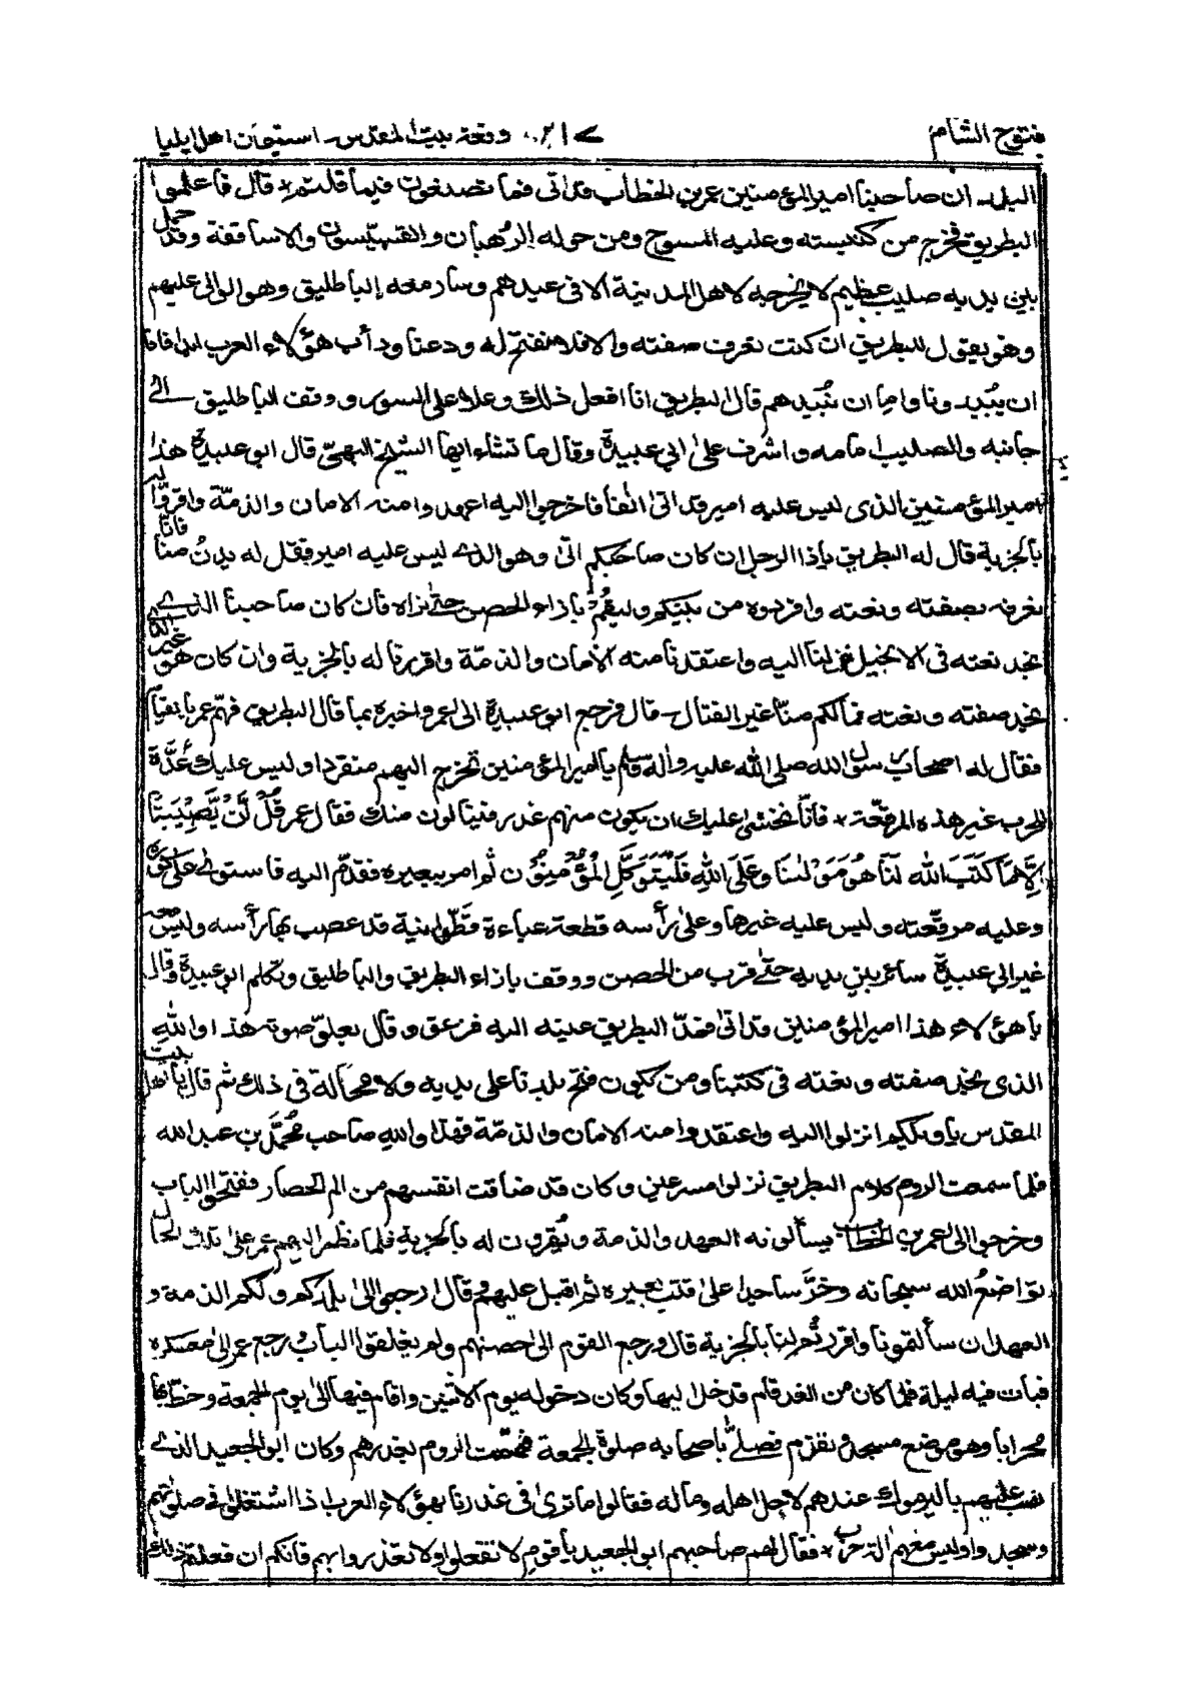 فتوح الشام
وقعة بيت المقدس استيمان اهل ايليا
البلد ان صاحبنا امير المؤمنين عمر بن الخطاب قد اتى فما تصدقون فيما قلتم قال فاعلموا
البطريق فخرج من كنيسته وعليه المسوح ومن حوله الرهبان والقسيسون والاساقفة وقد حمل
بين يديه صليب عظيم لا يخرجه لاهل المدينة الا فى عيدهم وسار معه الباطليق وهو الوالى عليهم
وهو يقول للبطريق ان كنت تعرف صفته والا فلا نفتح له ودعنا ودأب هؤلاء العرب ابدا فاما
ان يبيدونا واما ان نبيدهم قال البطريق انا افعل ذلك وعلا على السور ووقف الباطليق الى
جانبه والصليب امامه واشرف على ابي عبيدة وقال ما تشاء ايها الشيخ البهى قال ابو عبيدة هذا
امير المؤمنين الذى ليس عليه امير قد اتى انفا فاخرجوا اليه اعهدوا منه الامان والذمة واقروا له
بالجزية قال له البطريق ياذا الرجل ان كان صاحبكم اتى وهو الذى ليس عليه امير فقل له يدن منا فانا
نعرفه بصفته ونعته وافردوه من بينكم وليقم بازاء الحصن حتى نراه فان كان صاحبنا الذى
نجد نعته فى الانجيل نزلنا اليه واعتقدنا منه الامان والذمة واقررنا له بالجزية وان كان هو غير الذى
نجد صفته ونعته فما لكم منا غير القتال قال فرجع ابو عبيدة الى عمر واخبره بما قال البطريق فهم عمر بالقيام
فقال له اصحاب رسول الله صلى الله عليه واله وسلم يا امير المؤمنين تخرج اليهم منفردا وليس عليك عدة
الحرب غير هذه المرقعة فانا نخشى عليك ان يكون منهم غدر فينالون منك فقال عمر قُلْ لَنْ يُّصِيْبَنَا
اِلَّا مَا كَتَبَ اللهُ لَنَا هُوَ مَوْلٰنَا وَعَلَى اللهِ فَلْيَتَوَكَّلِ الْمُؤْمِنُوْنَ ثم امر ببعيره فقدم اليه فاستوى على كوره
وعليه مرقعته وليس عليه غيرها وعلى رأسه قطعة عباءة قطوانية قد عصب بها رأسه وليس معه
غير ابي عبيدة سائر بين يديه حتى قرب من الحصن ووقف بازاء البطريق والباطليق وتكلم ابو عبيدة وقال
يا هؤلاء هذا امير المؤمنين قد اتى فمد البطريق عينه اليه فزعق وقال بعلو صوته هذا والله
الذى نجد صفته ونعته فى كتبنا ومن يكون فتح بلدنا على يديه ولا محالة فى ذلك ثم قال يا اهل بيت
المقدس يا ويلكم انزلوا اليه واعتقدوا منه الامان والذمة فهذا والله صاحب محمد بن عبد الله
فلما سمعت الروم كلام البطريق نزلوا مسرعين وكان قد ضاقت انفسهم من الم الحصار ففتحوا الباب
وخرجوا الى عمر بن الخطاب يسألونه العهد والذمة ويقرون له بالجزية فلما نظر اليهم عمر على تلك الحال
تواضع لله سبحانه وخر ساجدا على قتب بعيره ثم اقبل عليهم وقال ارجعوا الى بلدكم ولكم الذمة و
العهد ان سألتمونا واقررتم لنا بالجزية قال ورجع القوم الى حصنهم ولم يغلقوا الباب ورجع عمر الى معسكره
فبات فيه ليلة فلما كان من الغد قام قدخل اليها وكان دخوله يوم الاثنين واقام فيها الى يوم الجمعة وخط بها
محرابا وهو موضع مسجده وتقدم فصلى باصحابه صلوة الجمعة فهمت الروم بغدرهم وكان ابو الجعيد الذى
نصب عليهم باليرموك عندهم لاجل اهله وماله فقالوا ما ترى فى غدرنا بهؤلاء العرب اذا اشتغلوا فى صلوتهم
وسجدوا وليس معهم الة حرب فقال لهم صاحبهم ابو الجعيد يا قوم لا تفعلوا ولا تغدروا بهم فانكم ان فعلتم ذلك